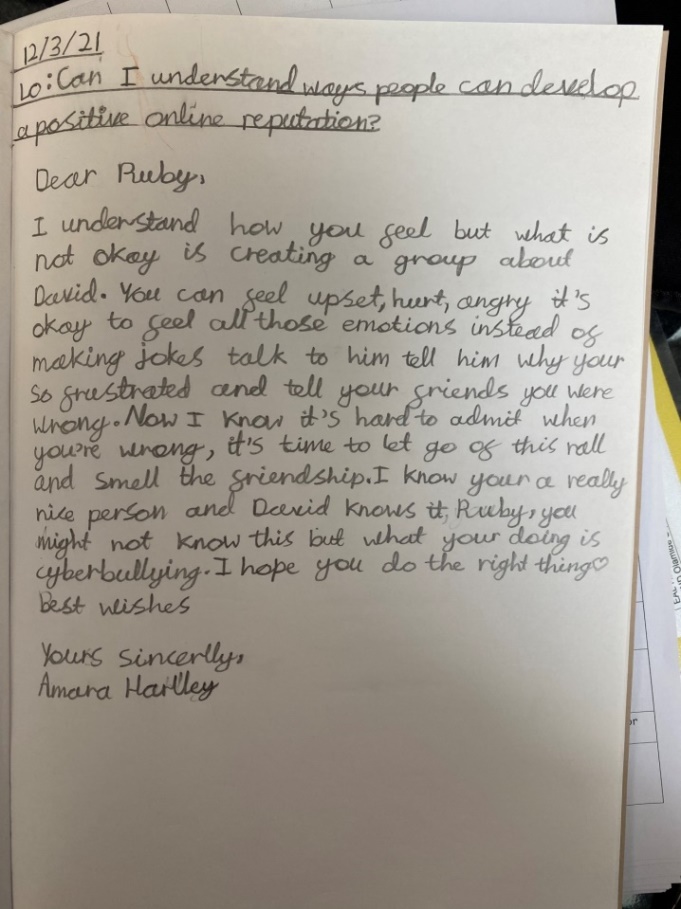 12/3/21
LO: Can I understand ways people can develop
a positive online reputation?
Dear Ruby,
I understand how you feel but what is
not okay is creating a group about
David. You can feel upset, hurt, angry it's
okay to feel all those emotions instead of
making jokes talk to him tell him why your
so frustrated and tell your friends you were
wrong. Now I know it's hard to admit when
you're wrong, it's time to let go of this rall
and smell the friendship. I know your a really
nice person and David knows it, Ruby, you
might not know this but what your doing is
cyberbullying. I hope you do the right thing♡
Best wishes
Yours sincerlly,
Amara Hartley